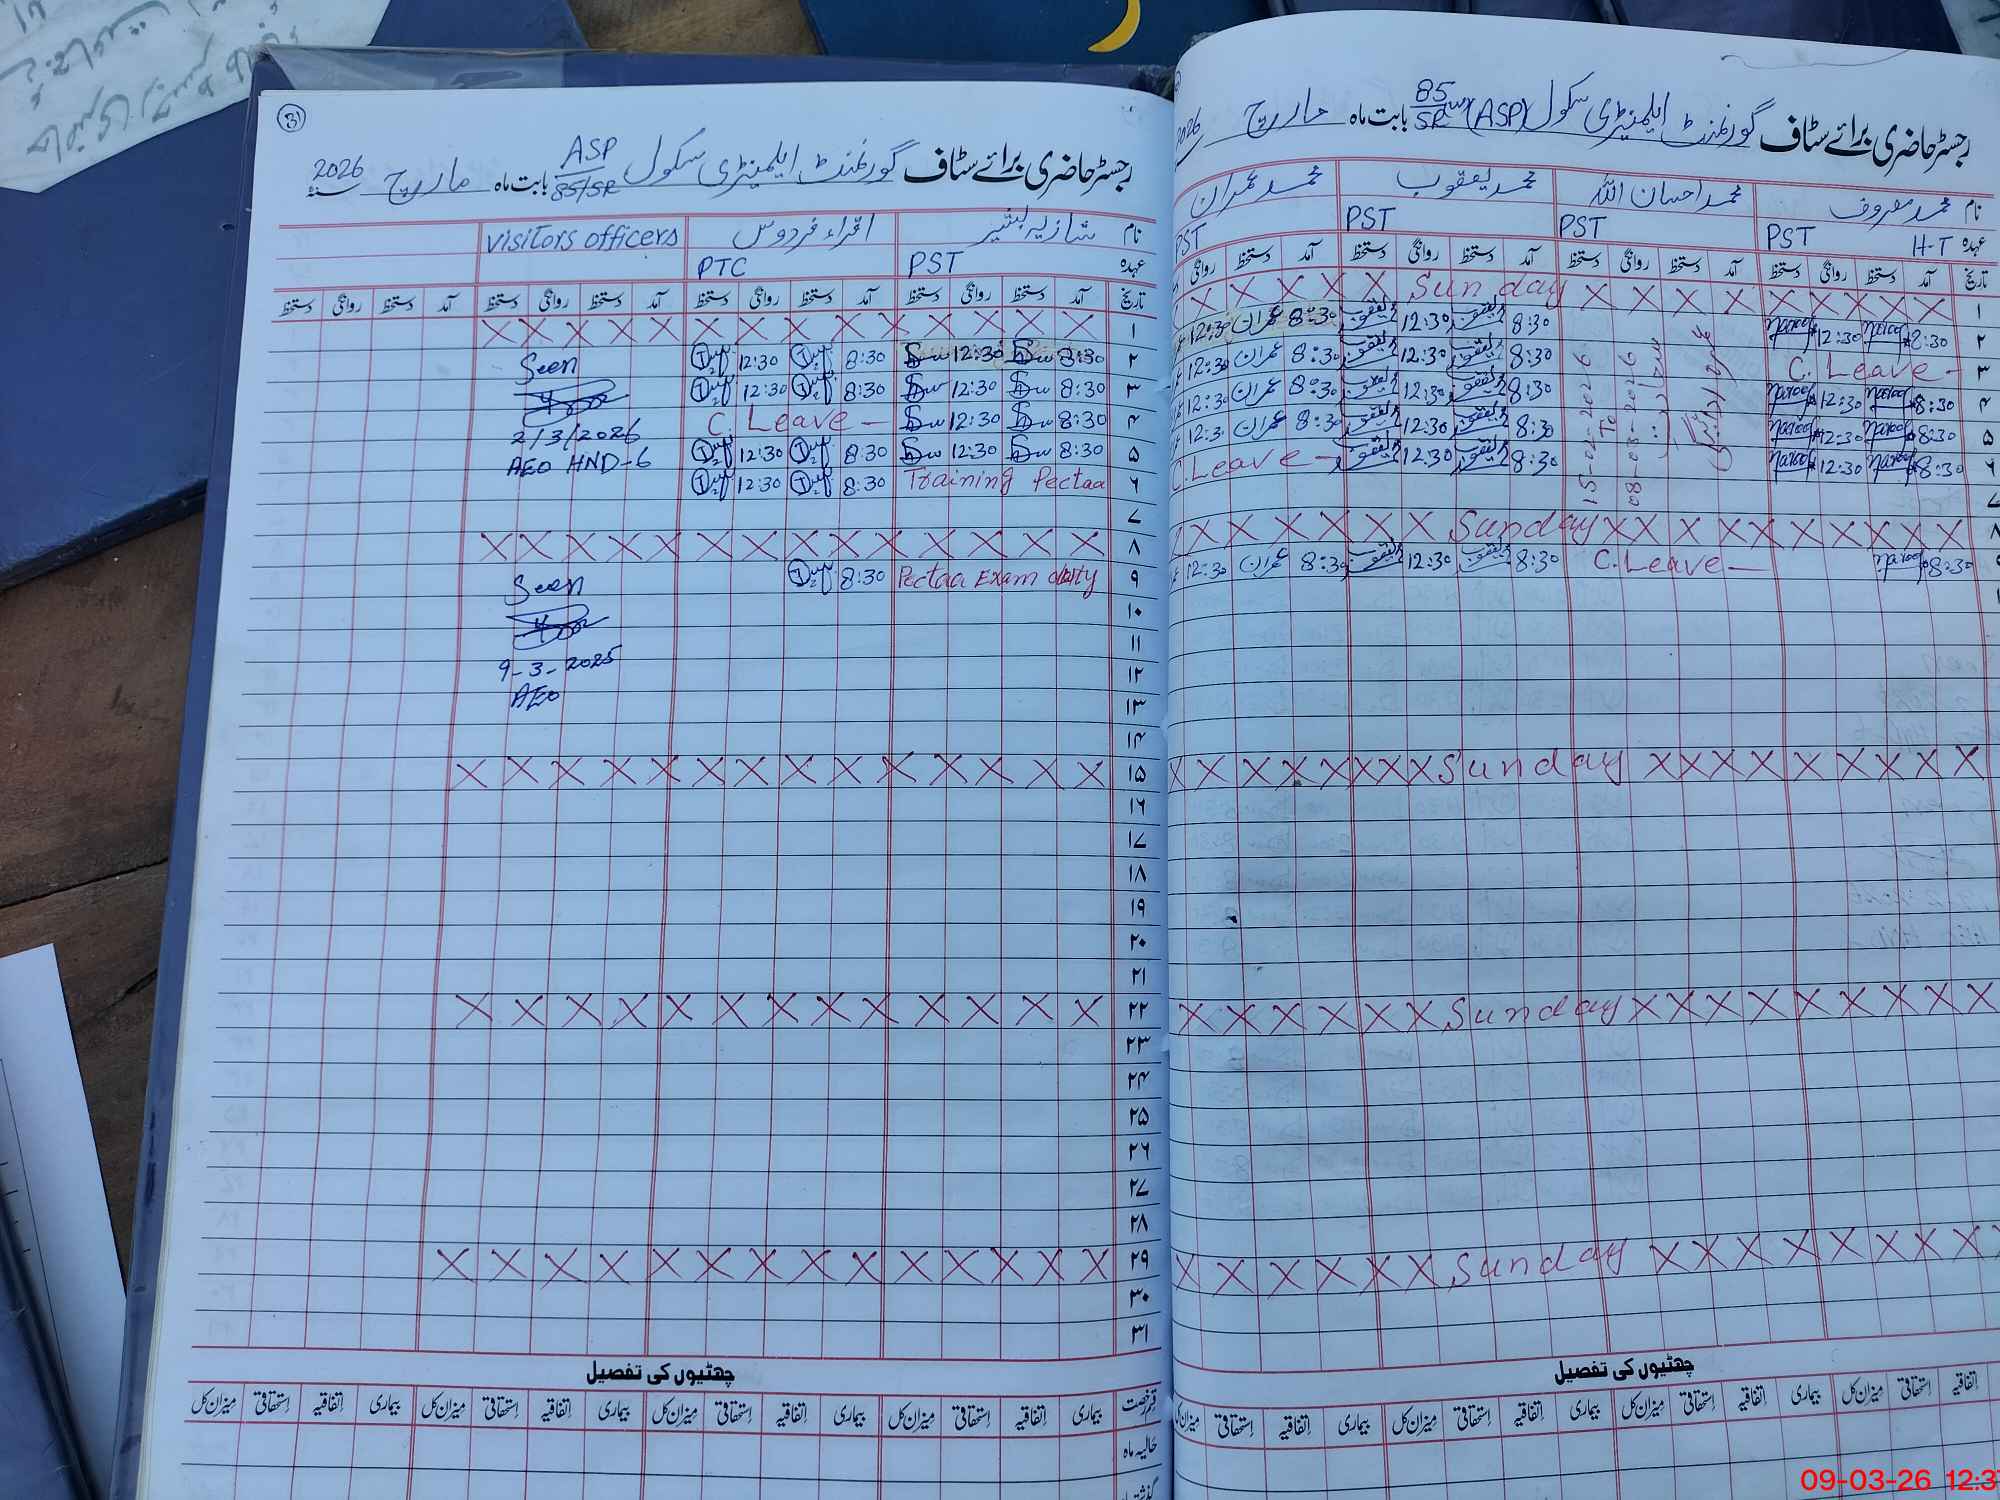 31
رجسٹر حاضری برائے سٹاف گورنمنٹ ایلیمنٹری سکول ASP 85/5R بابت ماہ مارچ 2026
نام شازیہ بشیر اقراء فردوس visitors officers
عہدہ PST PTC
تاریخ آمد دستخط روانگی دستخط آمد دستخط روانگی دستخط آمد دستخط روانگی دستخط آمد دستخط روانگی دستخط
۱ X X X X X X X X X X X X X
۲ 8:30 12:30 8:30 12:30 Seen
۳ 8:30 12:30 8:30 12:30
۴ 8:30 12:30 C. Leave – 2/3/2026
۵ 8:30 12:30 8:30 12:30 AEO HND-6
۶ Training Pectaa 8:30 12:30
۷
۸ X X X X X X X X X X X X X X
۹ Pectaa Exam duty 8:30 Seen
۱۰
۱۱
۱۲ 9-3-2025
۱۳ AEO
۱۴
۱۵ X X X X X X X X X X X X X
۱۶
۱۷
۱۸
۱۹
۲۰
۲۱
۲۲ X X X X X X X X X X X X
۲۳
۲۴
۲۵
۲۶
۲۷
۲۸
۲۹ X X X X X X X X X X X X X
۳۰
۳۱
چھٹیوں کی تفصیل
قسم رخصت بیماری اتفاقیہ استحقاقی میزان کل بیماری اتفاقیہ استحقاقی میزان کل بیماری اتفاقیہ استحقاقی میزان کل بیماری اتفاقیہ استحقاقی میزان کل
حالیہ ماہ
گذشتہ
رجسٹر حاضری برائے سٹاف گورنمنٹ ایلیمنٹری سکول (ASP) 85/5R بابت ماہ مارچ 2026
نام محمد معروف محمد احسان اللہ محمد یعقوب محمد عمران
عہدہ H-T PST PST PST PST
تاریخ آمد دستخط روانگی دستخط آمد دستخط روانگی دستخط آمد دستخط روانگی دستخط آمد دستخط روانگی
۱ X X X X X X X X Sunday X X X X X
۲ 8:30 Maroof 12:30 Maroof 8:30 یعقوب 12:30 یعقوب 8:30 عمران 12:30
۳ C. Leave – 8:30 یعقوب 12:30 یعقوب 8:30 عمران 12:30
۴ 8:30 Maroof 12:30 Maroof 8:30 یعقوب 12:30 یعقوب 8:30 عمران 12:30
۵ 8:30 Maroof 12:30 Maroof 8:30 یعقوب 12:30 یعقوب 8:30 عمران 12:3
۶ 8:30 Maroof 12:30 Maroof 8:30 یعقوب 12:30 یعقوب C. Leave –
عمرہ ادائیگی
15-02-2026
To
08-03-2026
۷
۸ X X X X X X X X X Sunday X X X X X X X
8:30 Maroof C. Leave – 8:30 یعقوب 12:30 یعقوب 8:30 عمران 12:30
X X X X X X X X Sunday X X X X X X X X
X X X X X X X X Sunday X X X X X X
X X X X X X X X Sunday X X X X X X
چھٹیوں کی تفصیل
اتفاقیہ استحقاقی میزان کل بیماری اتفاقیہ استحقاقی میزان کل بیماری اتفاقیہ استحقاقی میزان کل بیماری اتفاقیہ استحقاقی میزان کل
09-03-26 12:3